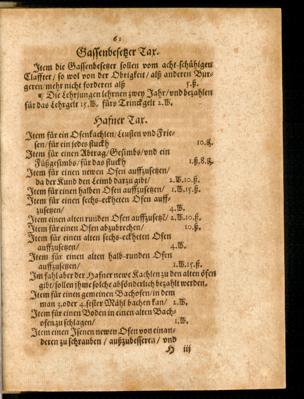 61
Gassenbesetzer Tax.
Item die Gassenbesetzer sollen vom acht-schühigen
Claffter/ so wol von der Obrigkeit/ alß anderen Bur-
geren/ mehr nicht forderen alß 5.ß.
¶ Die Lehrjungen lehrnen zwey Jahr/ und bezahlen
für das Lehrgelt 15.W. fürs Trinckgelt 2.W.
Hafner Tax.
Item für ein Ofenkachlen/ Leusten und Frie-
sen/ für ein jedes stuckh 10.₰.
Item für einen Abtrag/ Gesimbs/ und ein
Füßgesimbs/ für das stuckh 1.ß.8.₰.
Item für einen newen Ofen auffzusetzen/
da der Kund den Leimb darzu gibt/ 2.W.10.ß.
Item für einen halben Ofen auffzusetzen/ 1.W.15.ß.
Item für einen sechs-eckheten Ofen auff-
zusetzen/ 4.W.
Item einen alten runden Ofen auffzusetz/ 2.W.10.ß.
Item für einen Ofen abzubrechen/ 10.ß.
Item für einen alten sechs-eckheten Ofen
auffzusetzen/ 4.W.
Item für einen alten halb-runden Ofen
auffzusetzen/ 1.W.15.ß.
Im fahl aber der Hafner newe Kachlen zu den alten öfen
gibt/ sollen ihme solche absönderlich bezahlt werden.
Item für einen gemeinen Bachofen/ in dem
man 3. oder 4. sester Mähl bachen kan/ 2.W.
Item für einen Boden in einen alten Bach-
ofen zu schlagen/ 1.W.
Item einen Jsenen newen Ofen von einan-
deren zu schrauben/ außzubesseren/ und
H iij